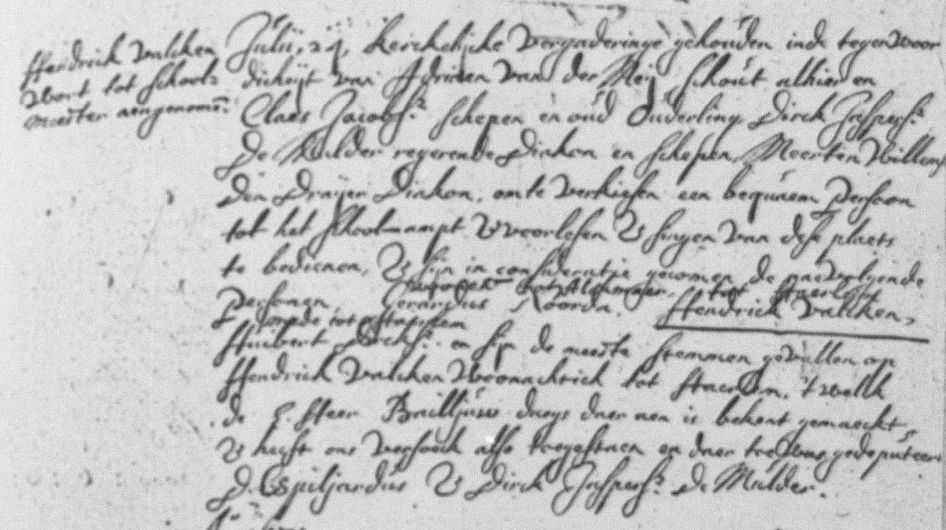 Hendrick Valcken
Wort tot school
meester aengenomen
Julij, 24, kerckelijcke Vergaderinge gehouden inde tegenwoor
dicheijt van Adriaen van der Meij schout alhier en
Claes Jacobsz schepen en oud Ouderling Dirck Jaspersz
De Mulder regerende Diakon en schepen, Meerten Willemsz
den Draijer Diakon, om te verkiesen een bequaem persoon
tot het schoolampt & voorlesen & singen van dese plaets
te bedienen, & sijn in consideratie gecomen de naevolgende
persoonen Gerardus Noorda. Hendrick Valcken,
Huibert Dircksz. en sijn de meeste stemmen gevallen op
Hendrick Valcken Woonachtich tot 'twelk
de E. Heer Bailljuw daegs daer aen is bekent gemaeckt
& heeft ons versoeck also toegestaen en daer toe was gedeputeert
D. Spiljardus & Dirck Jaspersz De Mulder.